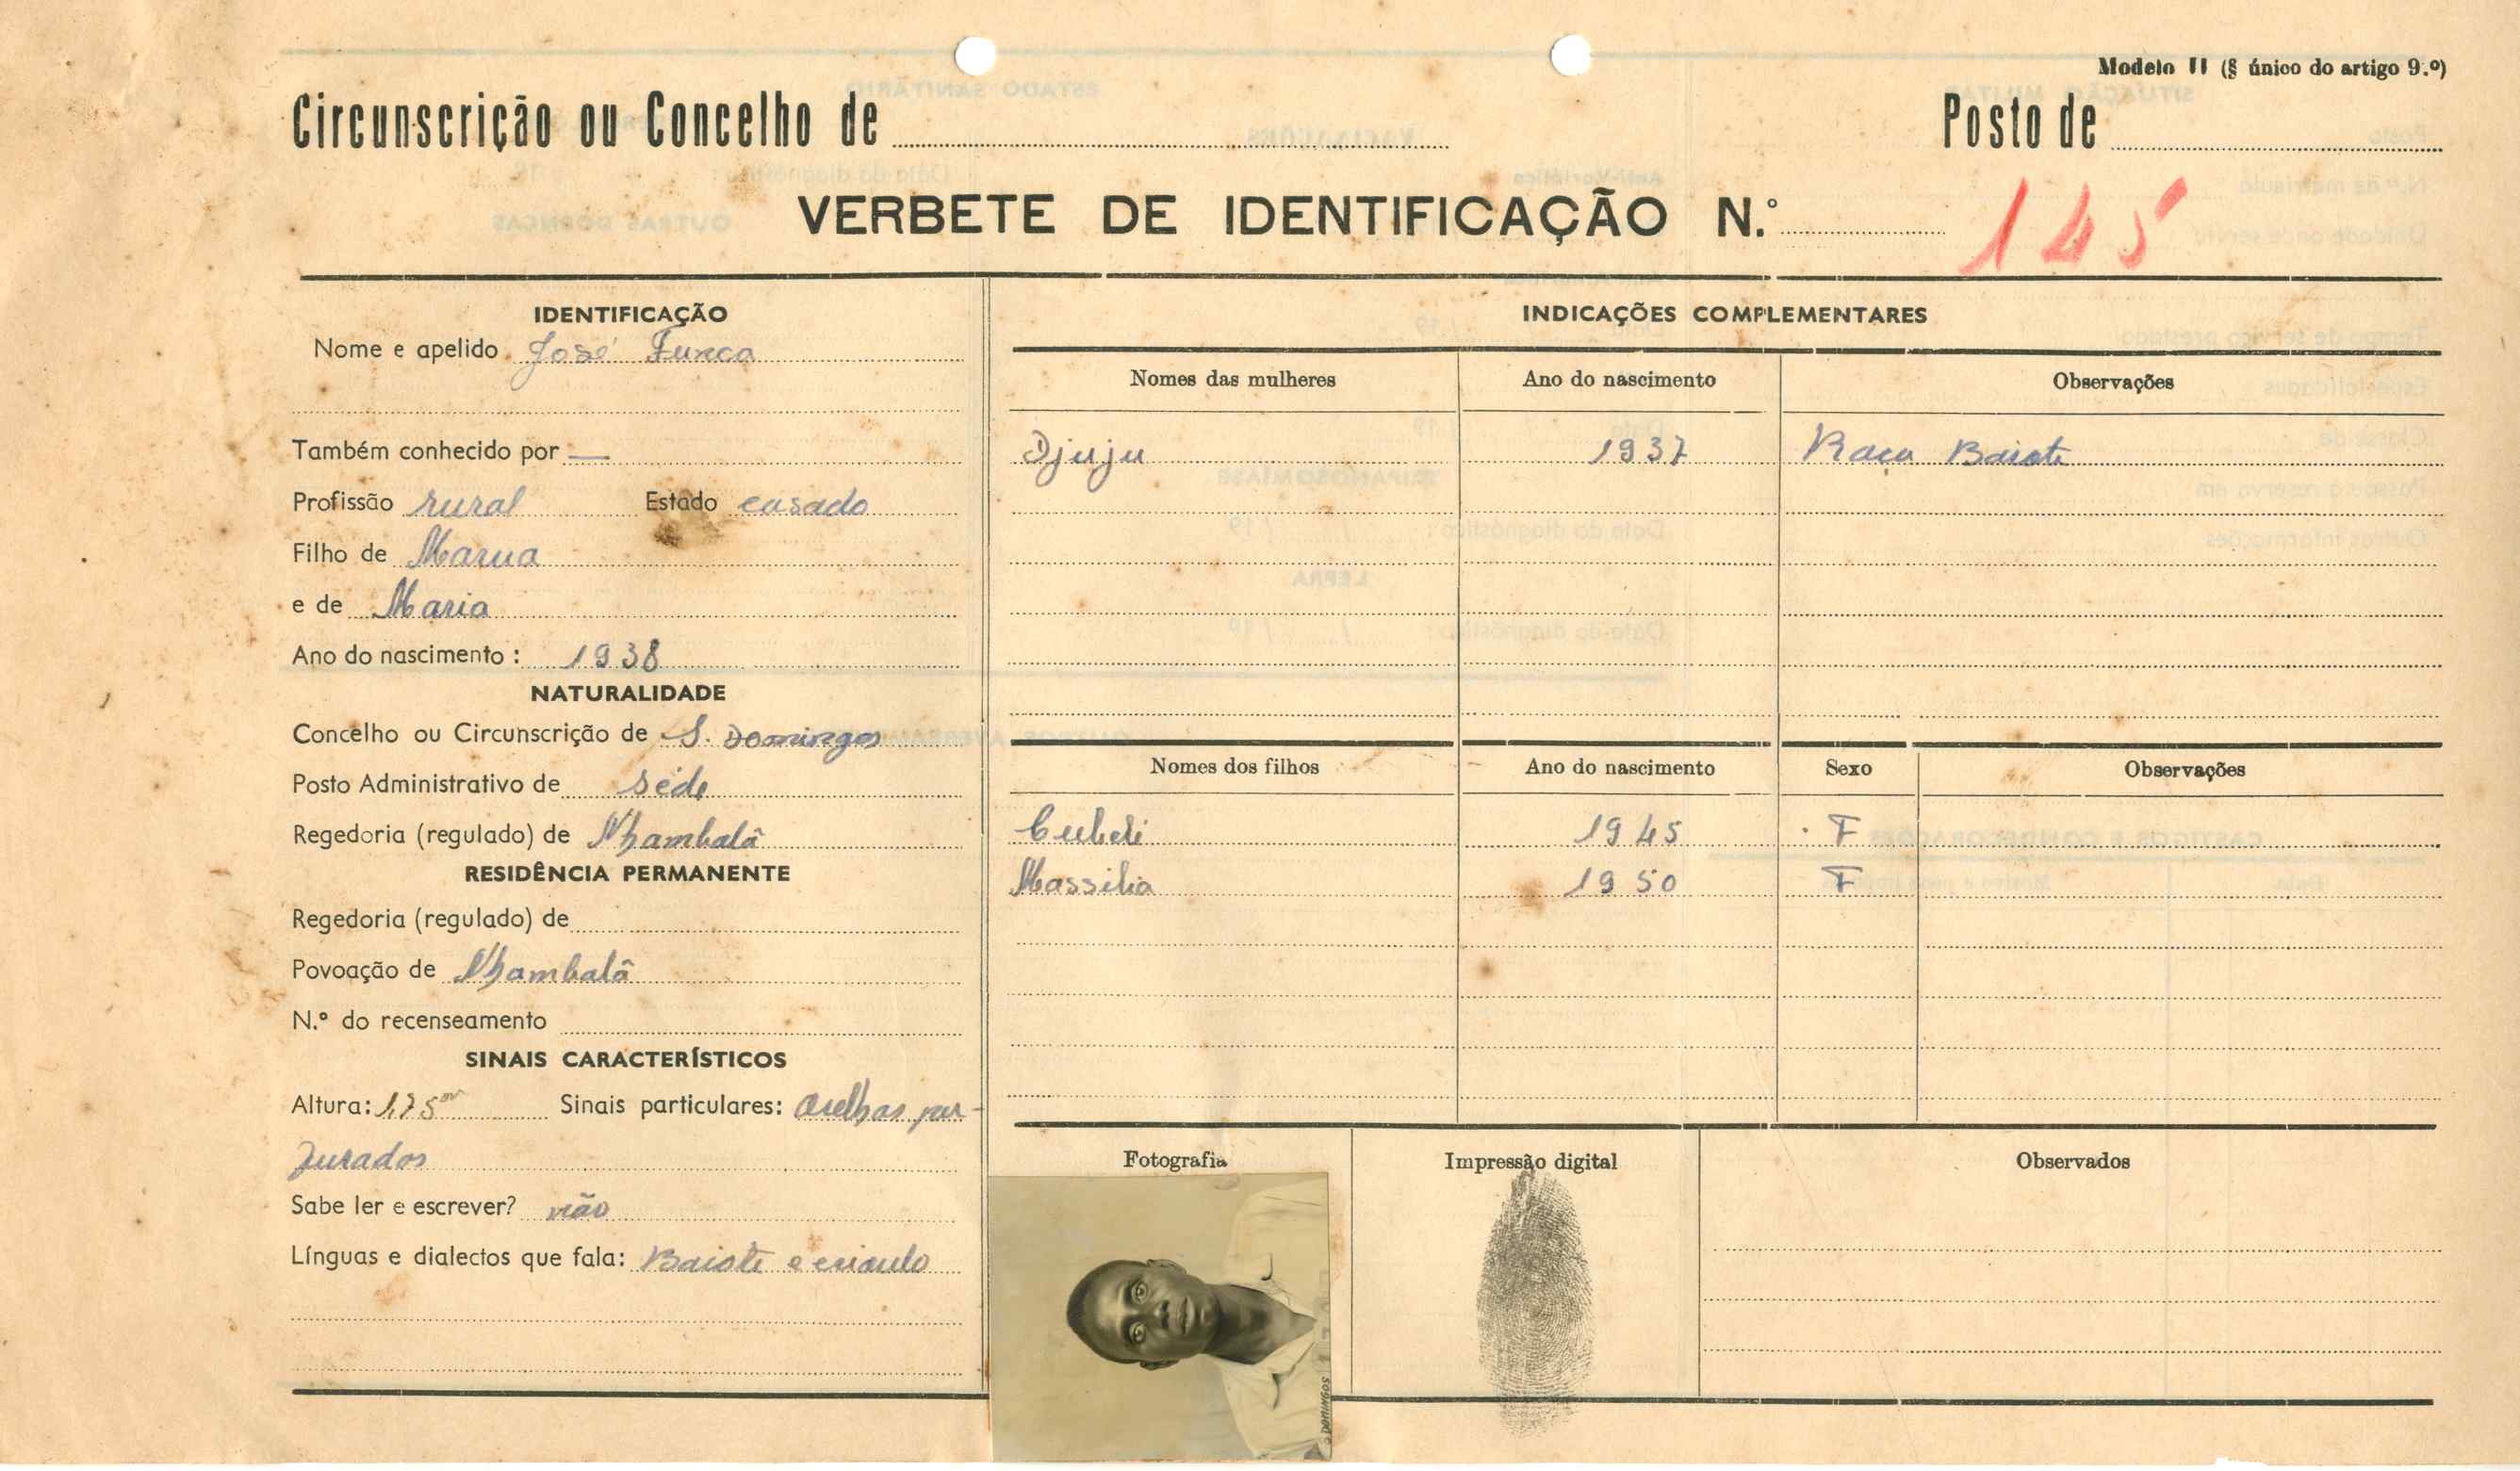 Modelo II (§ único do artigo 9.º)
Circunscrição ou Concelho de Posto de
VERBETE DE IDENTIFICAÇÃO N.º 145
IDENTIFICAÇÃO
Nome e apelido José Funca
Também conhecido por —
Profissão rural Estado casado
Filho de Marua
e de Maria
Ano do nascimento: 1938
NATURALIDADE
Concelho ou Circunscrição de S. Domingos
Posto Administrativo de sede
Regedoria (regulado) de Nhambalã
RESIDÊNCIA PERMANENTE
Regedoria (regulado) de
Povoação de Nhambalã
N.º do recenseamento
SINAIS CARACTERÍSTICOS
Altura: 1,75m Sinais particulares: orelhas per-
furados
Sabe ler e escrever? não
Línguas e dialectos que fala: Baiote e crioulo
INDICAÇÕES COMPLEMENTARES
Nomes das mulheres Ano do nascimento Observações
Djuju 1937 Raça Baiote
Nomes dos filhos Ano do nascimento Sexo Observações
Cubeli 1945 F
Massilia 1950 F
Fotografia Impressão digital Observados
S. DOMINGOS